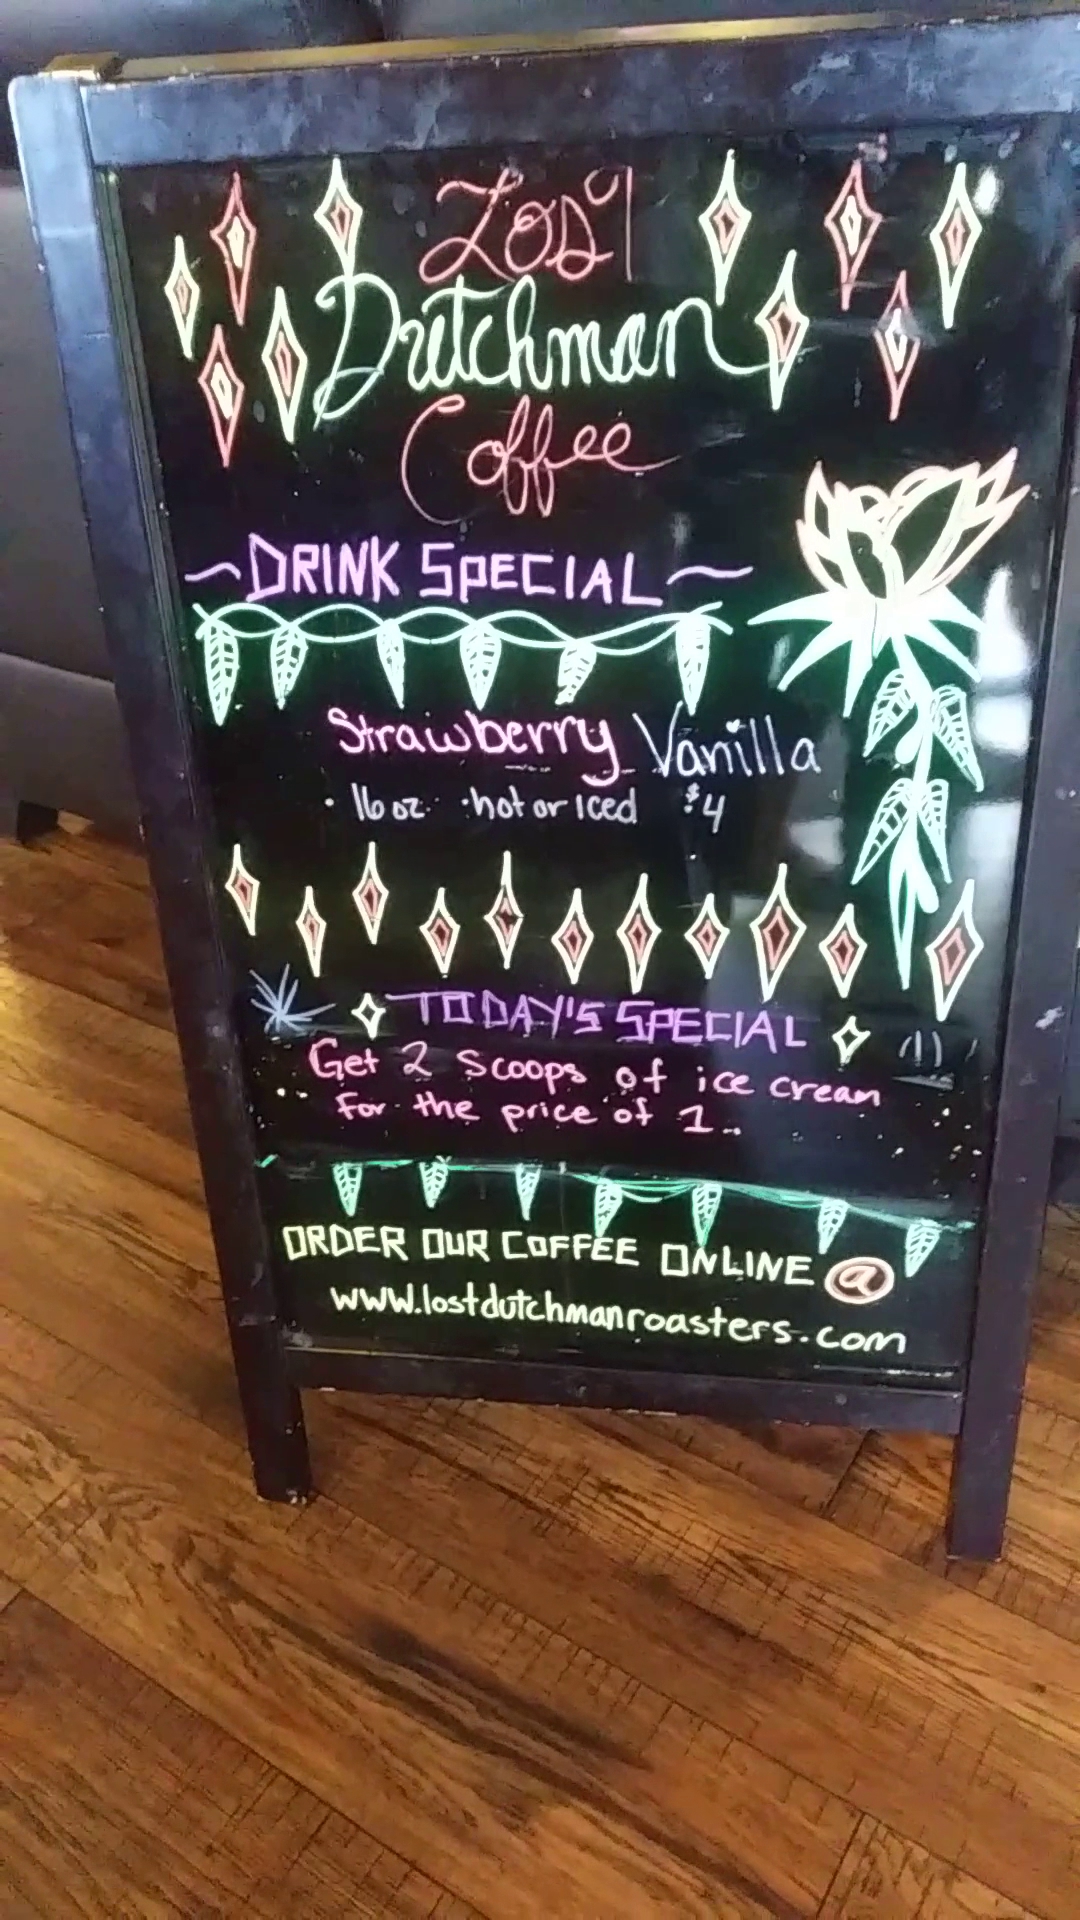 Lost
Dutchman
Coffee
~DRINK SPECIAL~
Strawberry Vanilla
• 16 oz. •hot or Iced $4
TODAY'S SPECIAL
Get 2 scoops of ice cream
for the price of 1..
ORDER OUR COFFEE ONLINE @
www.lostdutchmanroasters.com